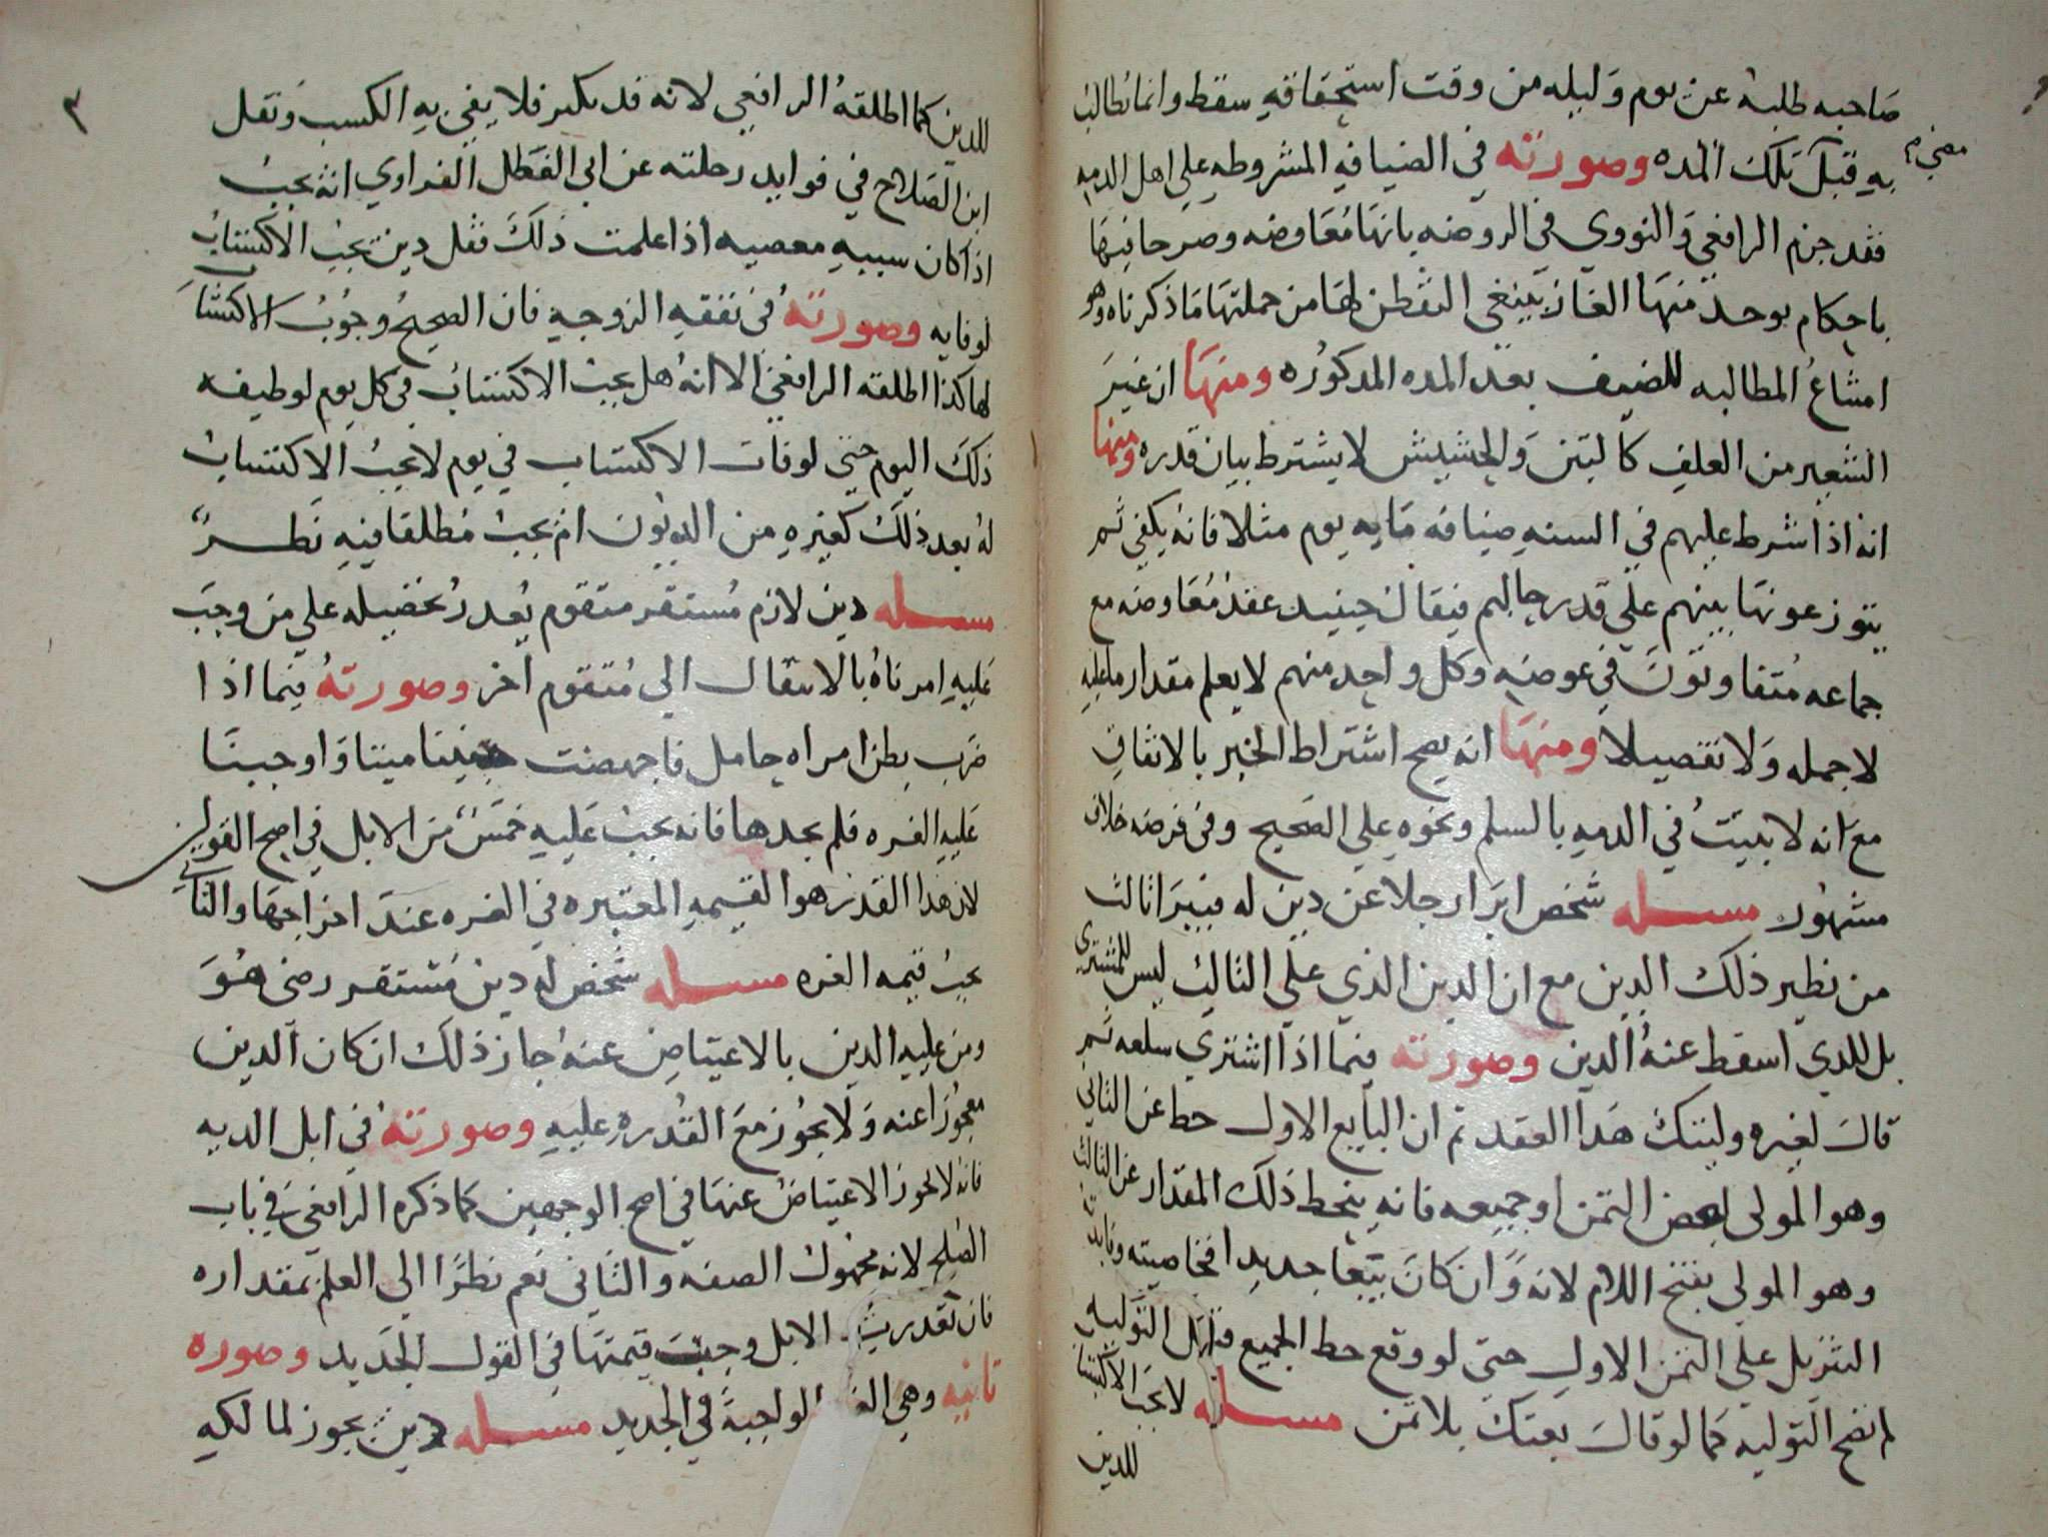 صاحبه طلبه عن يوم وليله من وقت استحقاقه سقط وانما يطالب
مضي
به قبل تلك المده وصورته في الضيافه المشروطه علي اهل الدمه
فقد جزم الرافعي والنووي في الروضه بانها معاوضه وصرحا فيها
باحكام يوحد منها الغاز ينبغي التفطن لها من جملتها ما ذكرناه وهو
امتناع المطالبه للضيف بعد المده المدكوره ومنها ان غير
الشعير من العلف كالتبن والحشيش لا يشترط بيان قدره ومنها
انه اذا شرط عليهم في السنه ضيافه مايه يوم مثلا فانه يكفي ثم
يتوزعونها بينهم علي قدر حالهم فيقال حينيد عقد معاوضه مع
جماعه متفاوتون في عوضه وكل واحد منهم لا يعلم مقدار ما عليه
لا جمله ولا تفصيلا ومنها انه يصح اشتراط الخبر بالاتفاق
مع انه لا يثبت في الدمه بالسلم ونحوه علي الصحيح وفي قرضه خلاف
مشهور مسله شخص ابرا رجلا عن دين له فيبرا ثالث
من نظير ذلك الدين مع ان الدين الذي علي الثالث ليس للمشتري
بل للدي اسقط عنه الدين وصورته فيما اذا اشتري سلعه ثم
قال لغيره وليتك هدا العقد ثم ان البايع الاول حط عن الثاني
وهو المولي بعض الثمن او جميعه فانه ينحط ذلك المقدار عن الثالث
وهو المولي بفتح اللام لانه وان كان بيعا جديدا فخاصيته وفايدته
التنزيل علي الثمن الاول حتي لو وقع حط الجميع قبل التوليه
لم تصح التوليه كما لو قال بعتك بلا ثمن مسله لا يجب الاكتساب
للدين
٣
للدين كما اطلقه الرافعي لانه قد يكبر فلا يفي به الكسب ونقل
ابن الصلاح في فوايد رحلته عن ابي الفضل الفراوي انه يجب
اذا كان سببه معصيه اذا علمت ذلك فقل دين يجب الاكتساب
لوفايه وصورته في نفقه الزوجيه فان الصحيح وجوب الاكتساب
لها كذا اطلقه الرافعي الا انه هل يجب الاكتساب في كل يوم لوظيفه
ذلك اليوم حتي لو فات الاكتساب في يوم لا يجب الاكتساب
له بعد ذلك كغيره من الديون ام يجب مطلقا فيه نظر
مسله دين لازم مستقر متقوم يعدر تحصيله علي من وجب
عليه امرناه بالانتقال الي متقوم اخر وصورته فيما اذا
ضرب بطن امراه حامل فاجهضت جنينا ميتا واوجبنا
عليه الغره فلم يجدها فانه يجب عليه خمس من الابل في اصح القولين
لان هدا القدر هو القيمه المعتبره في الغره عند اخراجها والثاني
يجب قيمه الغره مسله شخص له دين مستقر رضي هو
ومن عليه الدين بالاعتياض عنه جاز ذلك ان كان الدين
معجوزا عنه ولا يجوز مع القدره عليه وصورته في ابل الديه
فانه لا يجوز الاعتياض عنها في اصح الوجهين كما ذكره الرافعي في باب
الصلح لانه مجهول الصفه والثاني نعم نظرا الي العلم بمقداره
فان تعدرت الابل وجبت قيمتها في القول الجديد وصوره
ثانيه وهي الواجبة في الجديد مسله دين يجوز لمالكه